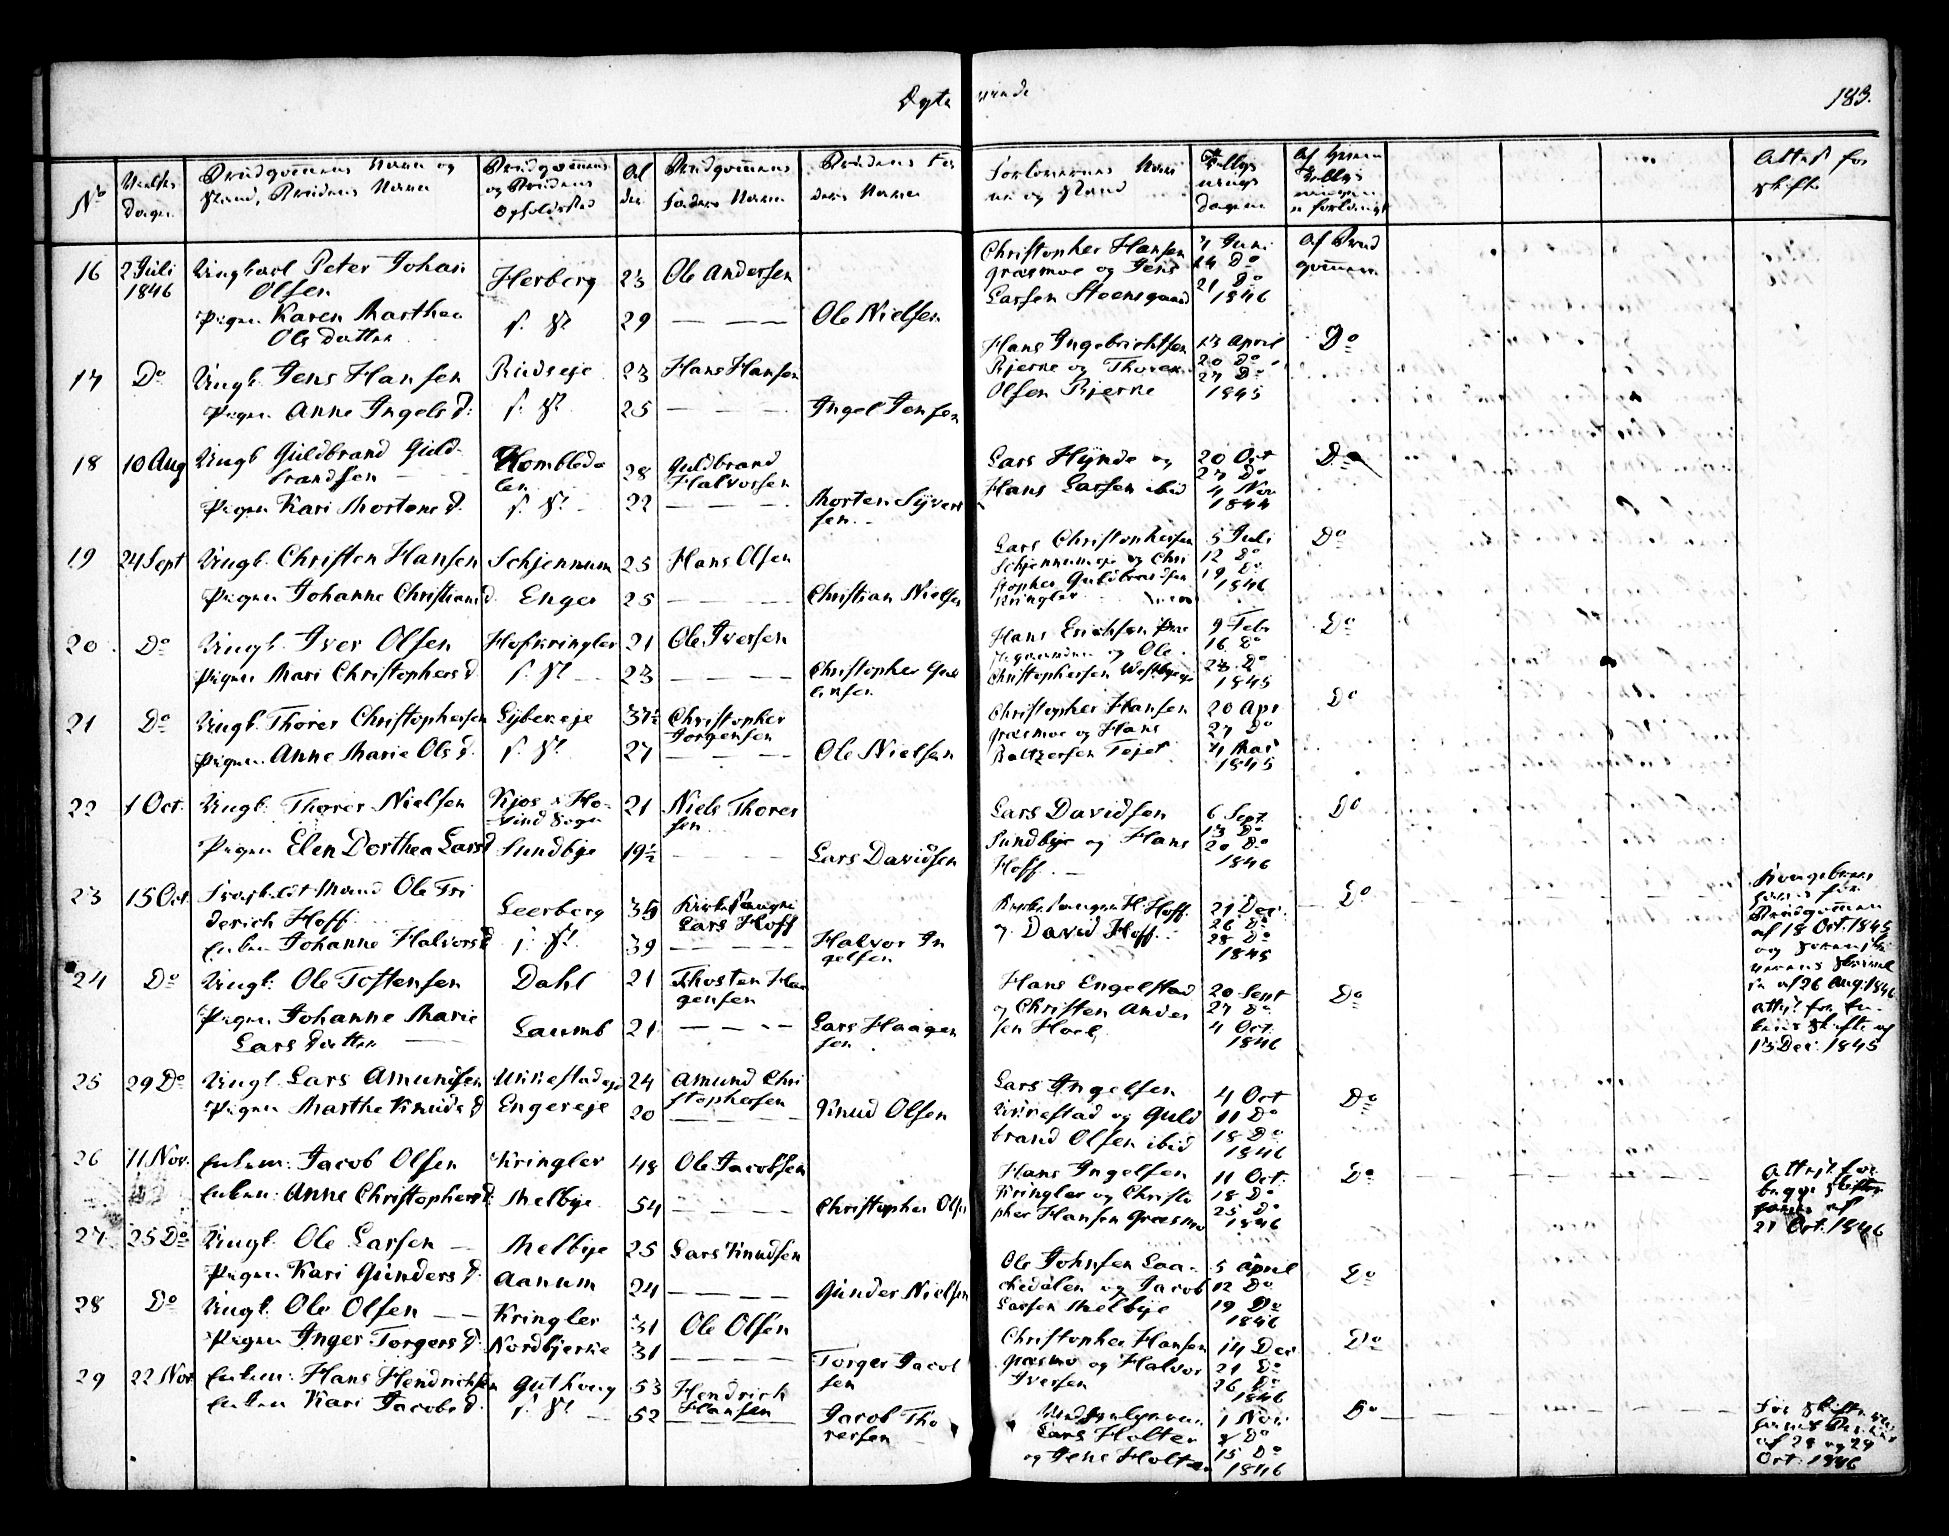 Ægte viede
183.
No
Vielses Dagen
Brudgommens Navn og Stand, Brudens Navn
Brudgommens og Brudens Opholdsted
Al der
Brudgommens Faders Navn
Brudens Faders Navn
Forlovernes Navne og Stand
Af hvem
Attest for Skifte
16 2 Juli 1846 Ungkarl Peter Johan Olsen Herberg 23 Ole Andersen
Pigen Karen Marthea Ols datter 29 — — — Ole Nielsen
Christopher Hansen Græsmoe og Jens Larsen Steensgaard
7 Juni 14 Do 21 Do 1846
af Brudgommen
17 Do Ungk. Jens Hansen Rudseje 23 Hans Hansen
Pigen Anne Ingels d: 25 — — — Ingel Jensen
Hans Ingebrichtsen Bjerke og Thoren Olsen Bjerke
13 April 20 Do 27 Do 1845
Do
18 10 Aug Ungk Guldbrand Guldbrandsen 28 Guldbrand Halvorsen
Pigen Kari Mortens d. 22 — — — Morten Syversen
Lars Hynde og Hans Larsen ibid
20 Oct 27 Do 4 Nov 1844
Do
19 24 Sept Ungk. Christen Hansen Schjennum 25 Hans Olsen
Pigen Johanne Christians d. Enger 25 — — — Christian Nielsen
Lars Christophersen Schjennumeje og Christopher Guldbrandsen Kringler
5 Juli 12 Do 19 Do 1846
Do
20 Do Ungk. Iver Olsen Hofkringler 21 Ole Iversen
Pigen Mari Christophers d. 23 — — — Christopher
Hans Erichsen og Ole Christophersen
9 Febr 16 Do 23 Do 1845
Do
21 Do Ungk. Thorer Christophersen Lybereje 37½ Christopher Torgensen
Pigen Anne Marie Ols d. 27 — — — Ole Nielsen
Christopher Hansen Græsmoe og Hans Baltzersen Tejet
20 Apr 27 Do 4 Mai 1845
Do
22 1 Oct. Ungk. Thorer Nielsen Kjos i Hovind Sogn 21 Niels Thoresen
Pigen Elen Dorthea Lars d Sundbye 19½ — — — Lars Davidsen
Lars Davidsen Sundbye og Hans Hoff. —
6 Sept. 13 Do 20 Do 1846
Do
23 15 Oct. Mand Ole Friderich Hoff Leerberg Lars Hoff
Enken Johanne Halvors d 39 — — Halvor Ingelsen
H. Hoff og David Hoff.
21 Dec. 26 Do 28 Do 1845
Do
Brudgommen af 18 Oct. 1845 og af 26 Aug 1846 Attest for Skifte af 13 Dec. 1845
24 Do Ungk: Ole Tostensen Dahl 21 Thosten Haagensen
Pigen Johanne Marie Lars datter Laumb 21 — — — Lars Haagensen
Hans Engelstad og Christen Andersen Horl
20 Sept 27 Do 4 Oct. 1846
Do
25 29 Do Ungk. Lars Amundsen Ukkestadeje 24 Amund Christophersen
Pigen Marthe Knuds d Engereje 20 — — — Knud Olsen
Lars Ingelsen Ukkestad og Guldbrand Olsen ibid
4 Oct 11 Do 18 Do 1846
Do
26 11 Nov. Enkem: Jacob Olsen Kringler 48 Ole Jacobsen
Enken: Anne Christophers d. Melbye 54 — — — Christopher Olsen
Hans Ingelsen Kringler og Christopher Hansen Græsmo
11 Oct. 18 Do 25 Do 1846
Do
Attest for begge af 21 Oct. 1846
27 25 Do Ungk. Ole Larsen — Melbye 25 Lars Knudsen
Pigen Kari Gunders d. Aanum 24 — — — Gunder Nielsen
Ole Johnsen Laachedalen og Jacob Larsen Melbye
5 April 12 Do 19 Do 1846
Do
28 Do Ungk. Ole Olsen — Kringler 31 Ole Olsen
Pigen Inger Torgers d. Nordbjerke 31 — — — Torger Jacobsen
Christopher Hansen Græsmo og Halvor Iversen
14 Dec 21 Do 26 Do 1846
Do
29 22 Nov Enkem: Hans Hendrichsen Guthoug 53 Hendrich Hansen
Enken Kari Jacobs d. 52 — — Jacob Thoresen
Lars Holter og Jens Holter
1 Nov. 8 Do 15 Do 1846
Do
For Skifte af 28 og 29 Oct. 1846